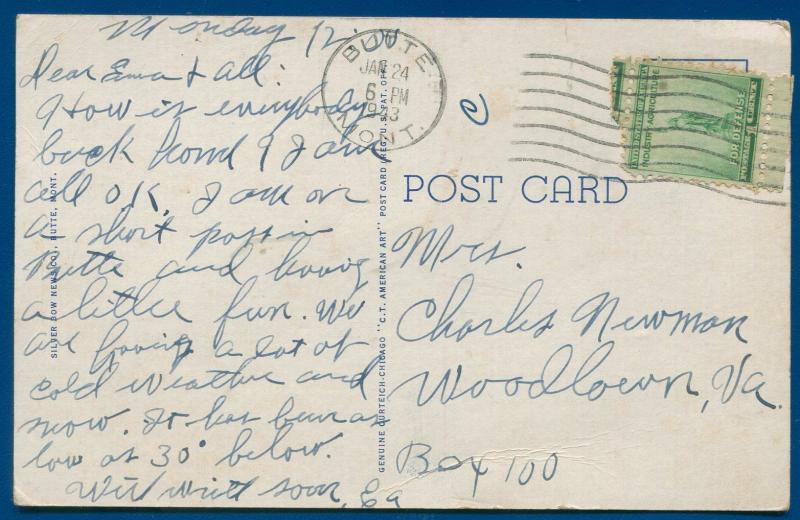 Monday 12
BUTTE
JAN 24
6 PM
MONT.
Dear Ema & all:
How is everybody
back home? I am
all OK, I am on
a short pass in
Butte and having
a little fun. We
are having a lot of
cold weather and
snow. It has been as
low as 30° below.
Will writt soon,
SILVER BOW NEWS CO., BUTTE, MONT.
GENUINE CURTEICH-CHICAGO "C.T. AMERICAN ART" POST CARD (REG. U.S. PAT. OFF.)
POST CARD
INDUSTRY AGRICULTURE
FOR DEFENSE
Mrs.
Charles Newman
Woodlawn, Va.
Box 100